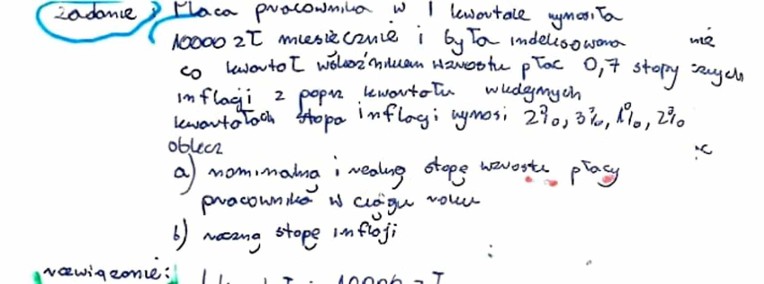 zadanie Płaca pracownika w I kwartale wynosiła
10000 zł miesięcznie i była indeksowana nie
co kwartał wskaźnikiem wzrostu płac 0,7 stopy
inflacji z poprz kwartału w kolejnych
kwartałach stopa inflacji wynosi 2%, 3%, 1%, 2%
oblicz
a) nominalną i realną stopę wzrostu płacy
pracownika w ciągu roku
b) roczną stopę inflacji
rozwiązanie: I kwartał: 10000 zł